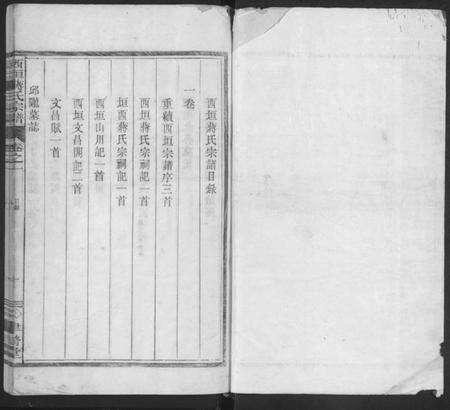 西垣蔣氏宗譜目錄
一卷
重續西垣宗譜序三首
西垣蔣氏宗祠記一首
垣西蔣氏宗祠記一首
西垣山川記一首
西垣文昌閣記二首
文昌賦一首
邱隴墓誌
西垣蔣氏宗譜
卷之一